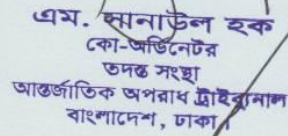 এম. সানাউল হক
কো-অর্ডিনেটর
তদন্ত সংস্থা
আন্তর্জাতিক অপরাধ ট্রাইব্যুনাল
বাংলাদেশ, ঢাকা